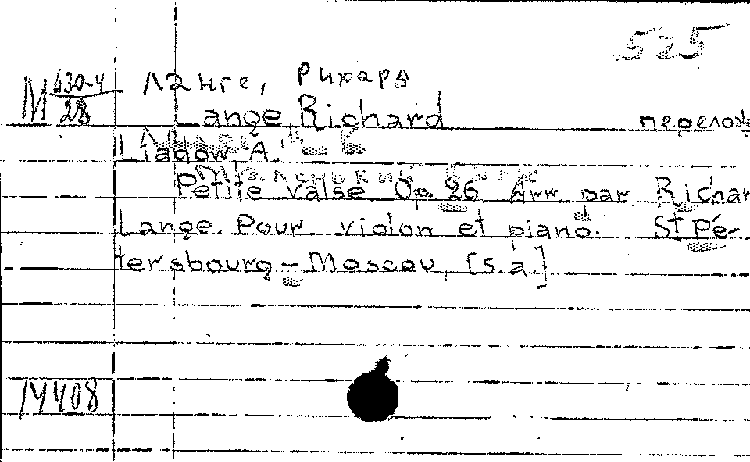 525
М 430-4/28
Ланге, Рихард
Lange, Richard перелож
Liadow A.
Petite valse Op 26 Arr. par Richar
Lange. Pour violon et piano. St Pé-
tersbourg - Moscou, [s.a.]
М408